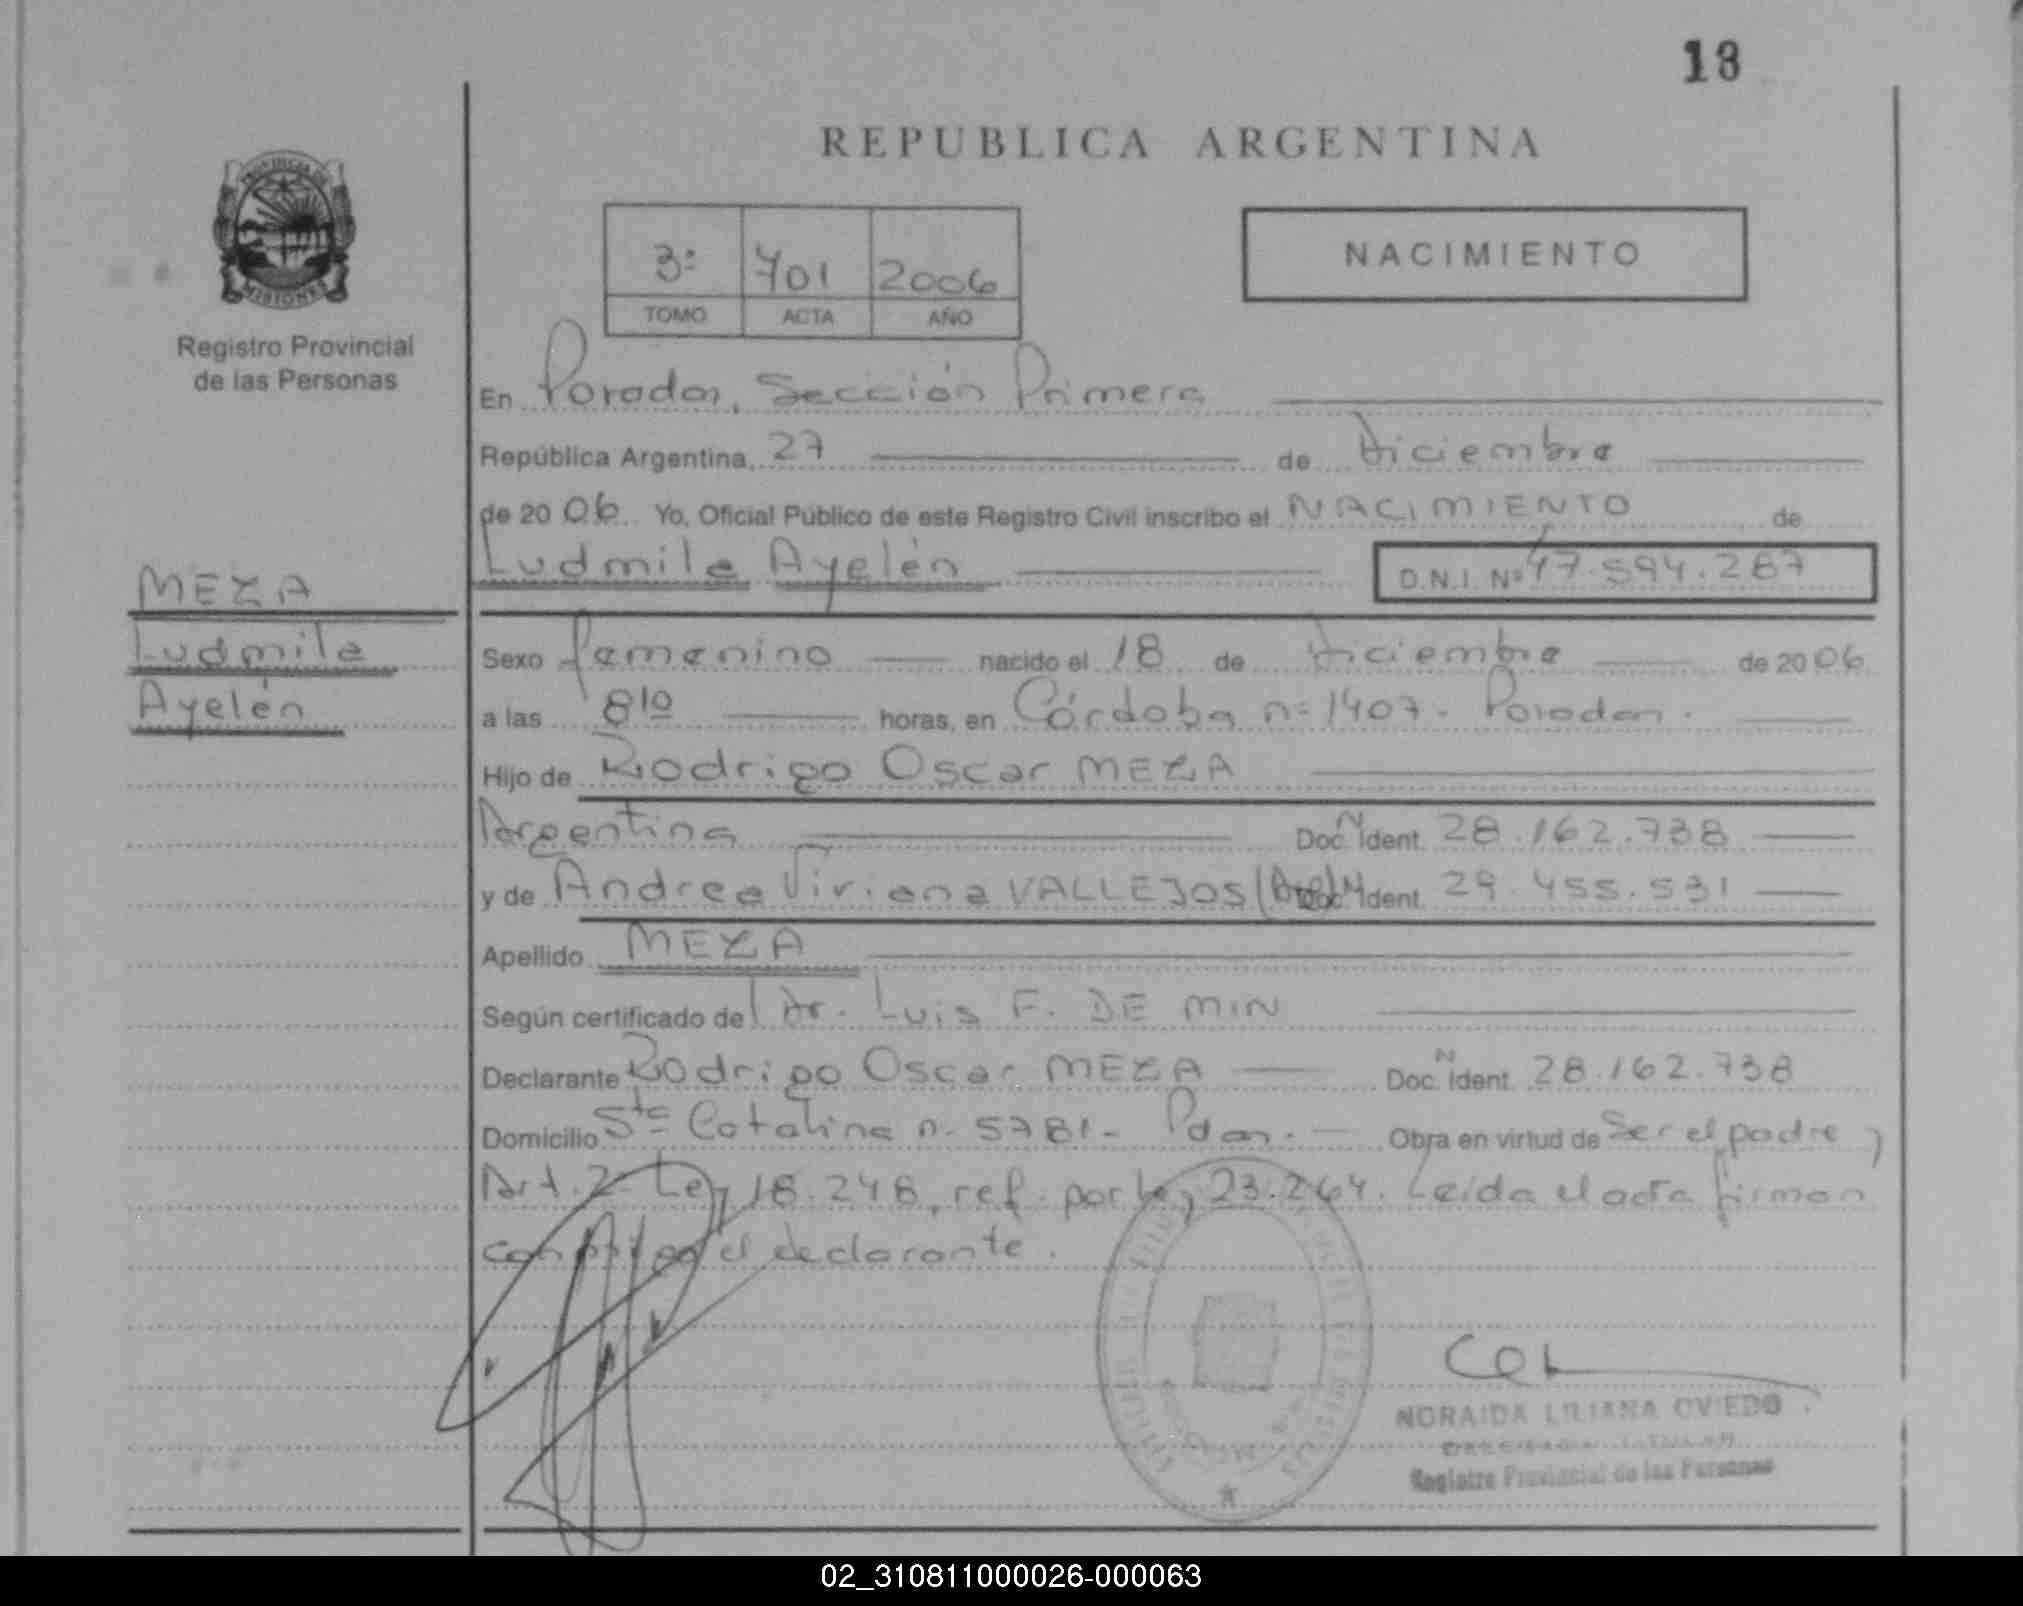 18
REPUBLICA ARGENTINA
PROVINCIA DE
MISIONES
Registro Provincial
de las Personas
3º 701 2006
TOMO ACTA AÑO
NACIMIENTO
En Posadas, Sección Primera
República Argentina, 27 de Diciembre
de 20 06. Yo, Oficial Público de este Registro Civil inscribo el NACIMIENTO de
Ludmila Ayelén D.N.I. Nº 47.594.287
MEZA
Ludmila
Ayelén
Sexo femenino nacido el 18 de Diciembre de 20 06
a las 8 10 horas, en Córdoba nº 1407 - Posadas.
Hijo de Rodrigo Oscar MEZA
Argentina Doc. N Ident. 28.162.738
y de Andrea Viviana VALLEJOS (Arg) Doc. N Ident. 29.455.531
Apellido MEZA
Según certificado del Dr. Luis F. DE MIN
Declarante Rodrigo Oscar MEZA Doc. N Ident. 28.162.738
Domicilio Sta Catalina n. 5781 - Pdas. Obra en virtud de Ser el padre y
Art. 2º Ley 18.248, ref. por Ley 23.264. Leída el acta firman
conmigo el declarante.
NORAIDA LILIANA OVIEDO
Registro Provincial de las Personas
02_310811000026-000063